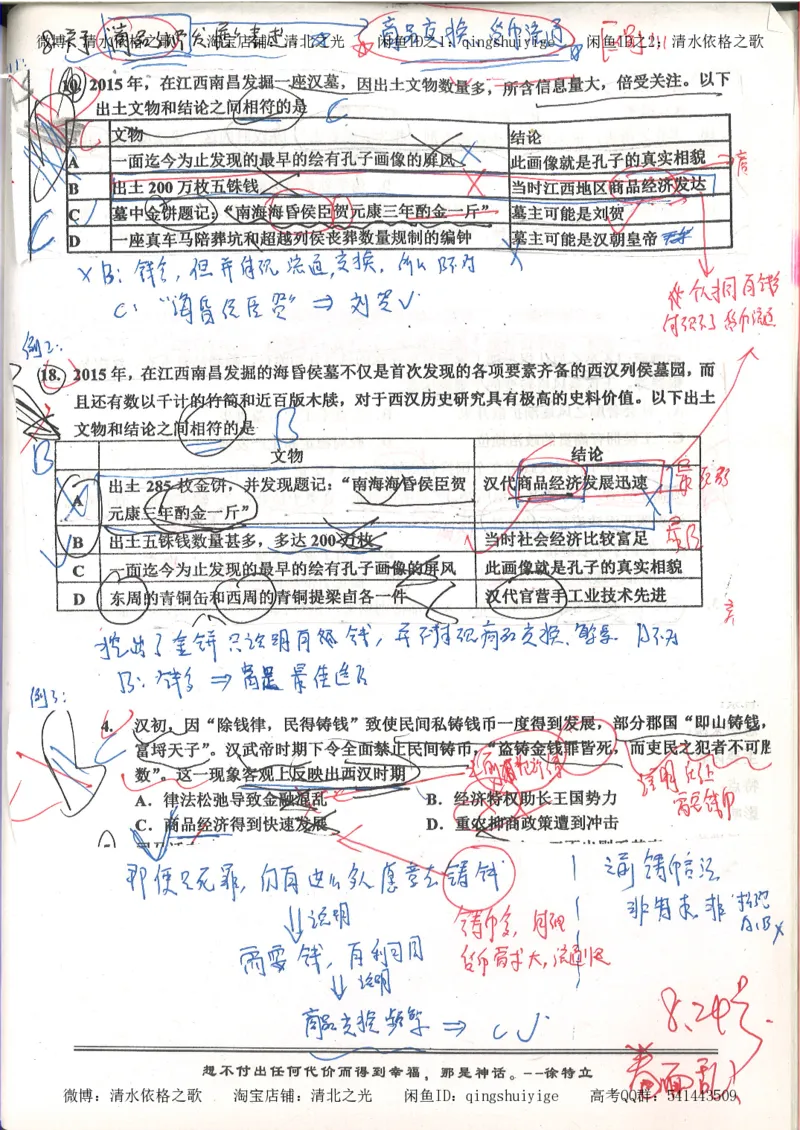 ⑧ 关于"商品经济发展"的表述 → 商品交换、货币流通
微博：清水依格之歌 淘宝店铺：清北之光 闲鱼ID之1：qingshuiyige 闲鱼ID之2：清水依格之歌
10. 2015年，在江西南昌发掘一座汉墓，因出土文物数量多，所含信息量大，倍受关注。以下
出土文物和结论之间相符的是 C
文物 结论
A 一面迄今为止发现的最早的绘有孔子画像的屏风 此画像就是孔子的真实相貌
B 出土200万枚五铢钱 当时江西地区商品经济发达
C 墓中金饼题记：“南海海昏侯臣贺元康三年酎金一斤” 墓主可能是刘贺
D 一座真车马陪葬坑和超越列侯丧葬数量规制的编钟 墓主可能是汉朝皇帝
× B：钱多，但并体现流通，交换，所以B不对
C："海昏侯臣贺" ⇒ 刘贺√
例2：
18. 2015年，在江西南昌发掘的海昏侯墓不仅是首次发现的各项要素齐备的西汉列侯墓园，而
且还有数以千计的竹简和近百版木牍，对于西汉历史研究具有极高的史料价值。以下出土
文物和结论之间相符的是 B
文物 结论
A 出土285枚金饼，并发现题记：“南海海昏侯臣贺 汉代商品经济发展迅速
元康三年酎金一斤”
B 出土五铢钱数量甚多，多达200万枚 当时社会经济比较富足
C 一面迄今为止发现的最早的绘有孔子画像的屏风 此画像就是孔子的真实相貌
D 东周的青铜缶和西周的青铜提梁卣各一件 汉代官营手工业技术先进
挖出了金饼只说明有钱，并不体现商品交换、A不对
B：钱多 ⇒ 富足 最佳选B
例3：
4. 汉初，因“除钱律，民得铸钱”致使民间私铸钱币一度得到发展，部分郡国“即山铸钱，
富埒天子”。汉武帝时期下令全面禁止民间铸币，“盗铸金钱罪皆死，而吏民之犯者不可胜
数”。这一现象客观上反映出西汉时期
A．律法松弛导致金融混乱 B．经济特权助长王国势力
C．商品经济得到快速发展 D．重农抑商政策遭到冲击
即使死罪，仍有这么多人愿意去铸钱 之前铸币合法
⇓说明 非 体现
需要钱，有利可图 A、B×
铸币多，体现
货币需求大，流通快
⇓说明
商品交换频繁 ⇒ C√
8.24号
卷面乱
想不付出任何代价而得到幸福，那是神话。--徐特立
微博：清水依格之歌 淘宝店铺：清北之光 闲鱼ID：qingshuiyige 高考QQ群：541443509